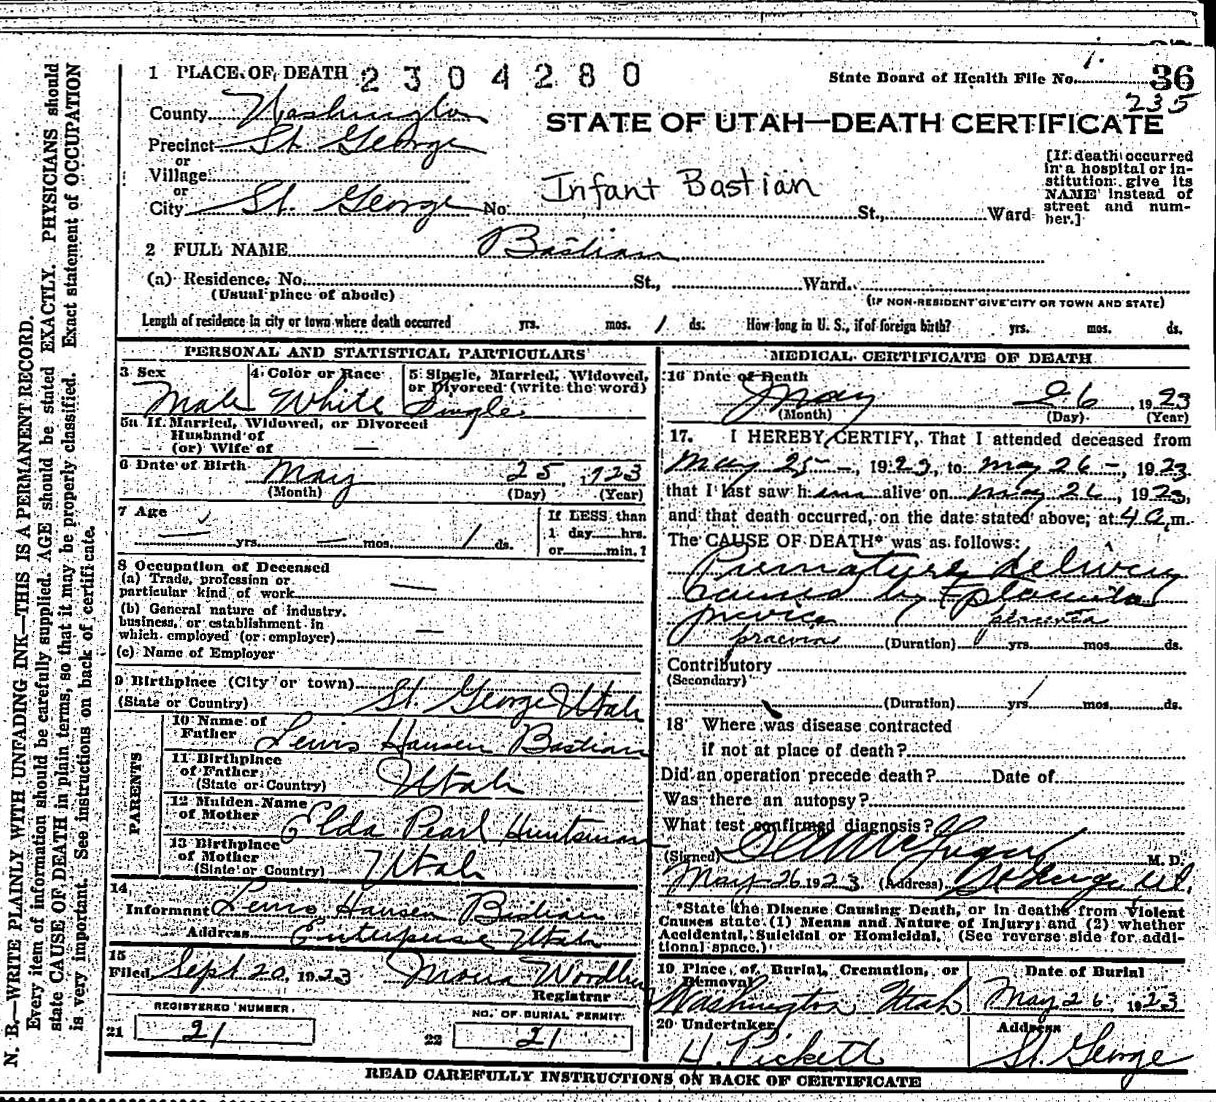 36
1 PLACE OF DEATH 2304280 State Board of Health File No. 1.
235
County Washington
STATE OF UTAH—DEATH CERTIFICATE
Precinct St. George
or
Village
or
City St. George No. Infant Bastian St., Ward
[If death occurred in a hospital or in-
stitution give its
NAME instead of
street and num-
ber.]
2 FULL NAME Bastian
(a) Residence, No. St., Ward.
(Usual place of abode) (IF NON-RESIDENT GIVE CITY OR TOWN AND STATE)
Length of residence in city or town where death occurred yrs. mos. 1 ds. How long in U. S., if of foreign birth? yrs. mos. ds.
PERSONAL AND STATISTICAL PARTICULARS
3 Sex 4 Color or Race 5 Single, Married, Widowed,
or Divorced (write the word)
Male White Single
5a If Married, Widowed, or Divorced
Husband of
(or) Wife of —
6 Date of Birth May 25, 1923
(Month) (Day) (Year)
7 Age If LESS than
1 day hrs.
— yrs. — mos. 1 ds. or min.?
8 Occupation of Deceased
(a) Trade, profession or
particular kind of work —
(b) General nature of industry,
business, or establishment in
which employed (or employer) —
(c) Name of Employer
9 Birthplace (City or town) St. George Utah
(State or Country)
PARENTS
10 Name of
Father Lewis Hansen Bastian
11 Birthplace
of Father
(State or Country) Utah
12 Maiden Name
of Mother Elda Pearl Huntsman
13 Birthplace
of Mother
(State or Country) Utah
14
Informant Lewis Hansen Bastian
Address Enterprise Utah
15
Filed Sept. 20, 1923
Registrar
REGISTERED NUMBER NO. OF BURIAL PERMIT
21 21 22 21
MEDICAL CERTIFICATE OF DEATH
16 Date of Death
May 26, 1923
(Month) (Day) (Year)
17. I HEREBY CERTIFY, That I attended deceased from
May 25 —, 1923, to May 26 —, 1923
that I last saw h im alive on May 26, 1923,
and that death occurred, on the date stated above, at 4 a.m.
The CAUSE OF DEATH* was as follows:
Premature delivery
caused by placenta
previa placenta
praevia (Duration) yrs. mos. ds.
Contributory
(Secondary)
(Duration) yrs. mos. ds.
18 Where was disease contracted
if not at place of death?
Did an operation precede death? Date of
Was there an autopsy?
What test confirmed diagnosis?
(Signed) M. D.
May 26 1923 (Address) St George Ut.
*State the Disease Causing Death, or in deaths from Violent
Causes state (1) Means and Nature of Injury; and (2) whether
Accidental, Suicidal or Homicidal. (See reverse side for addi-
tional space.)
19 Place of Burial, Cremation, or
Removal Date of Burial
Washington Utah May 26, 1923
20 Undertaker Address
H. Pickett St. George
READ CAREFULLY INSTRUCTIONS ON BACK OF CERTIFICATE
N. B.—WRITE PLAINLY WITH UNFADING INK—THIS IS A PERMANENT RECORD.
Every item of information should be carefully supplied. AGE should be stated EXACTLY. PHYSICIANS should
state CAUSE OF DEATH in plain terms, so that it may be properly classified. Exact statement of OCCUPATION
is very important. See instructions on back of certificate.